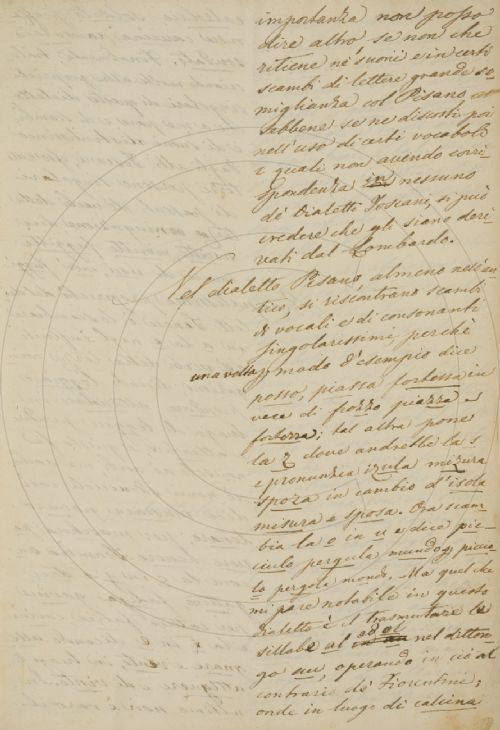 importanza non posso
dire altro se non che
ritiene ne' suoni e in certi
scambi di lettere grande so
miglianza col Pisano,
sebbene se ne discosti poi
nell'uso di certi vocaboli
i quali non avendo corri
spondenza in nessuno
de' Dialetti Toscani, si può
credere che gli siano deri
vati dal Lombardo.
Nel dialetto Pisano, almeno nell'an
tico, si riscontrano scambi
di vocali e di consonanti
singolarissimi, perchè
una volta p modo d'esempio dice
posso, piassa fortessa in
vece di pozzo piazza e
fortezza; tal altra pone
la z dove andrebbe la s
e pronunzia izula mizura
spoza in cambio d'isola
misura e sposa. Ora scam
bia la o in u e dice pic
ciulo pergula mundo p piccio
lo pergola mondo. Ma quel che
mi pare notabile in questo
dialetto è il trasmutare le
sillabe al ad ol nel ditton
go au, operando in ciò al
contrario de' Fiorentini;
onde in luogo di calcina